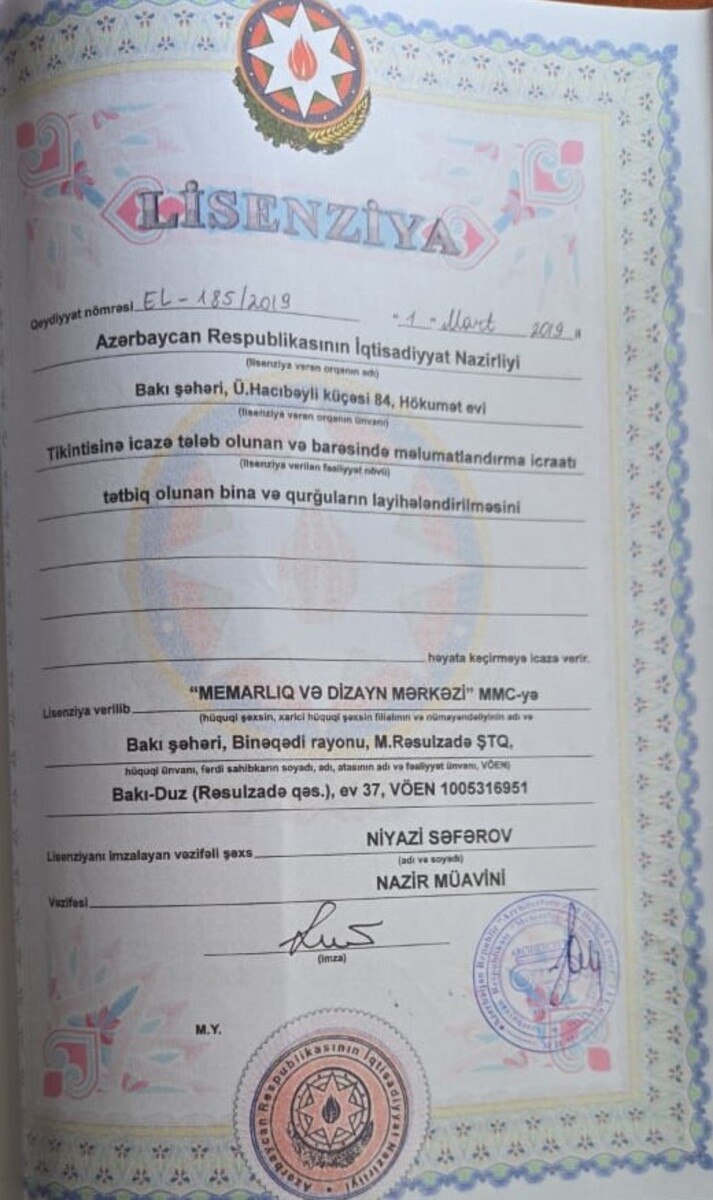 LİSENZİYA
Qeydiyyat nömrəsi EL-185/2019 "1" Mart 2019 "
Azərbaycan Respublikasının İqtisadiyyat Nazirliyi
(lisenziya verən orqanın adı)
Bakı şəhəri, Ü.Hacıbəyli küçəsi 84, Hökumət evi
(lisenziya verən orqanın ünvanı)
Tikintisinə icazə tələb olunan və barəsində məlumatlandırma icraatı
(lisenziya verilən fəaliyyət növü)
tətbiq olunan bina və qurğuların layihələndirilməsini
həyata keçirməyə icazə verir.
Lisenziya verilib "MEMARLIQ VƏ DİZAYN MƏRKƏZİ" MMC-yə
(hüquqi şəxsin, xarici hüquqi şəxsin filialının və nümayəndəliyinin adı və
Bakı şəhəri, Binəqədi rayonu, M.Rəsulzadə ŞTQ,
hüquqi ünvanı, fərdi sahibkarın soyadı, adı, atasının adı və fəaliyyət ünvanı, VÖEN)
Bakı-Duz (Rəsulzadə qəs.), ev 37, VÖEN 1005316951
Lisenziyanı imzalayan vəzifəli şəxs NİYAZİ SƏFƏROV
(adı və soyadı)
Vəzifəsi NAZİR MÜAVİNİ
(imza)
M.Y.
Azərbaycan Respublikasının İqtisadiyyat Nazirliyi